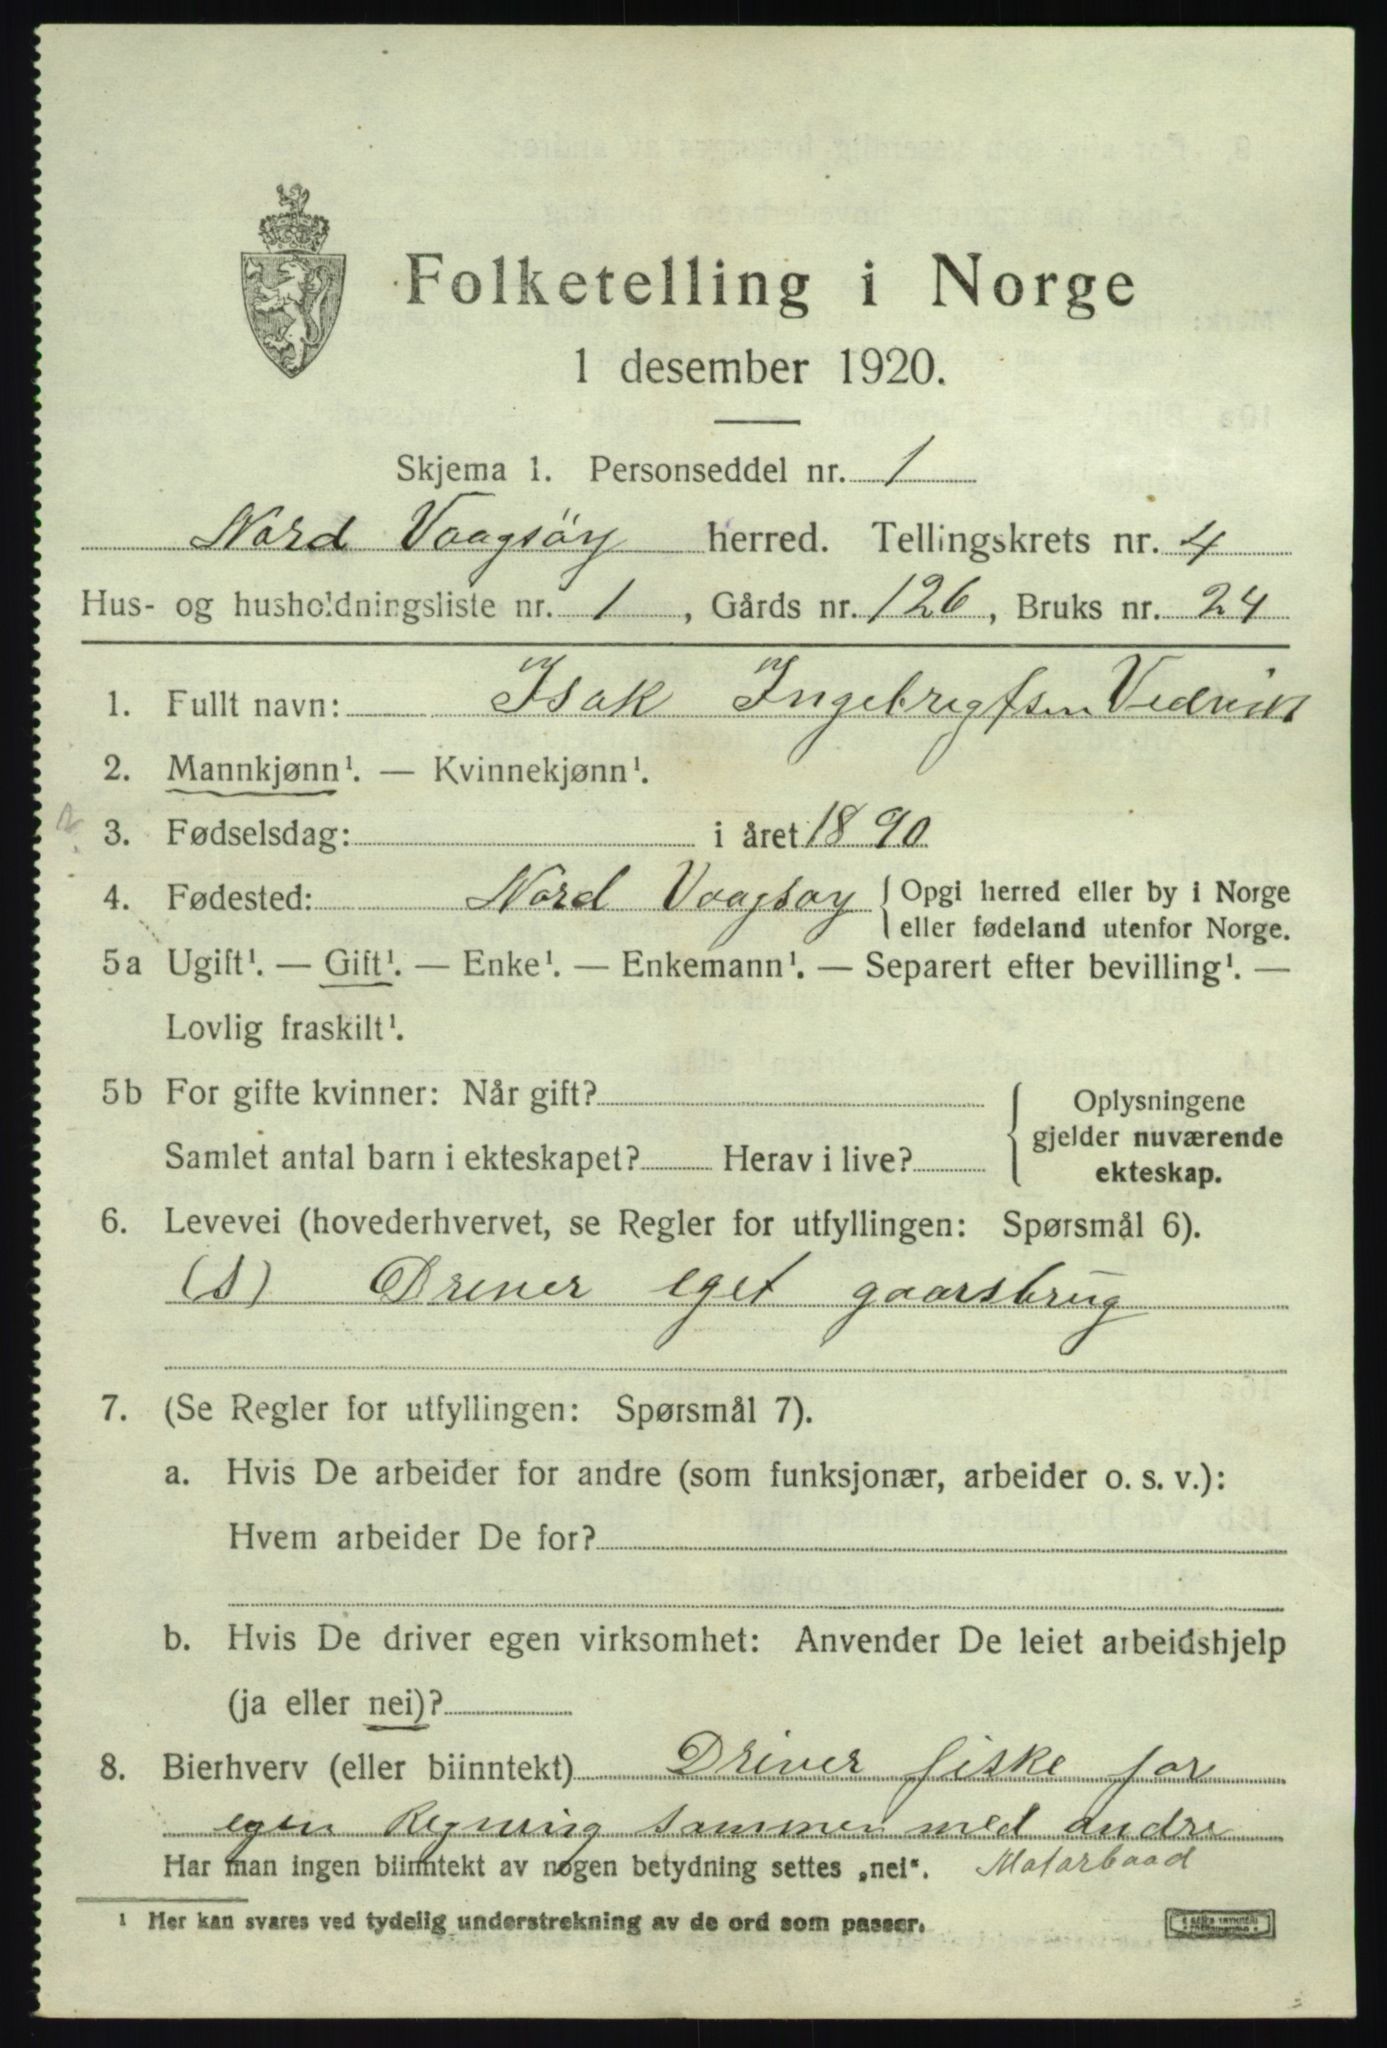 Folketelling i Norge
1 desember 1920.
Skjema 1. Personseddel nr. 1
Nord Vaagsöy herred. Tellingskrets nr. 4
Hus- og husholdningsliste nr. 1, Gårds nr. 126, Bruks nr. 24
1. Fullt navn: Isak Ingebrigtsen Vedvik
2. Mannkjønn¹. — Kvinnekjønn¹.
3. Fødselsdag: i året 1890
4. Fødested: Nord Vaagsøy { Opgi herred eller by i Norge
eller fødeland utenfor Norge.
5a Ugift¹. — Gift¹. — Enke¹. — Enkemann¹. — Separert efter bevilling¹. —
Lovlig fraskilt¹.
5b For gifte kvinner: Når gift? { Oplysningene
gjelder nuværende
Samlet antal barn i ekteskapet? Herav i live? ekteskap.
6. Levevei (hovederhvervet, se Regler for utfyllingen: Spørsmål 6).
(S) Driver eget gaarsbrug
7. (Se Regler for utfyllingen: Spørsmål 7).
a. Hvis De arbeider for andre (som funksjonær, arbeider o. s. v.):
Hvem arbeider De for?
b. Hvis De driver egen virksomhet: Anvender De leiet arbeidshjelp
(ja eller nei)?
8. Bierhverv (eller biinntekt) Driver fiske for
egen Regning sammen med andre
Har man ingen biinntekt av nogen betydning settes „nei“. Motorbaad
¹ Her kan svares ved tydelig understrekning av de ord som passer.